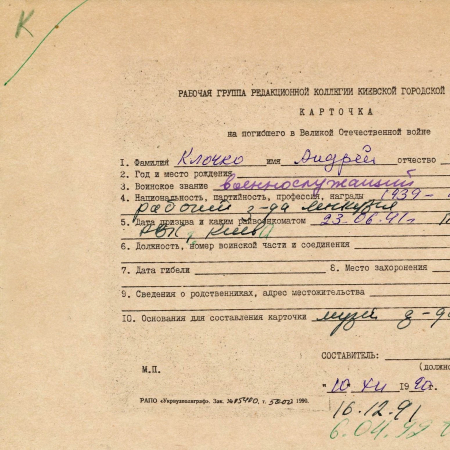 К.
РАБОЧАЯ ГРУППА РЕДАКЦИОННОЙ КОЛЛЕГИИ КИЕВСКОЙ ГОРОДСКОЙ
КАРТОЧКА
на погибшего в Великой Отечественной войне
1. Фамилия Клочко имя Андрей отчество
2. Год и место рождения
3. Воинское звание военнослужащий
4. Национальность, партийность, профессия, награды 1939-
рабочий з-да
5. Дата призыва и каким райвоенкоматом 23.06.41г
РВК, г. Киева
6. Должность, номер воинской части и соединения
7. Дата гибели 8. Место захоронения
9. Сведения о родственниках, адрес местожительства
10. Основания для составления карточки музей з-да
СОСТАВИТЕЛЬ:
М.П. (должно
"10" XII 1990г.
РАПО «Укрвузполиграф». Зак. № 5480, т. 5000 1990.
16.12.91
6.04.92